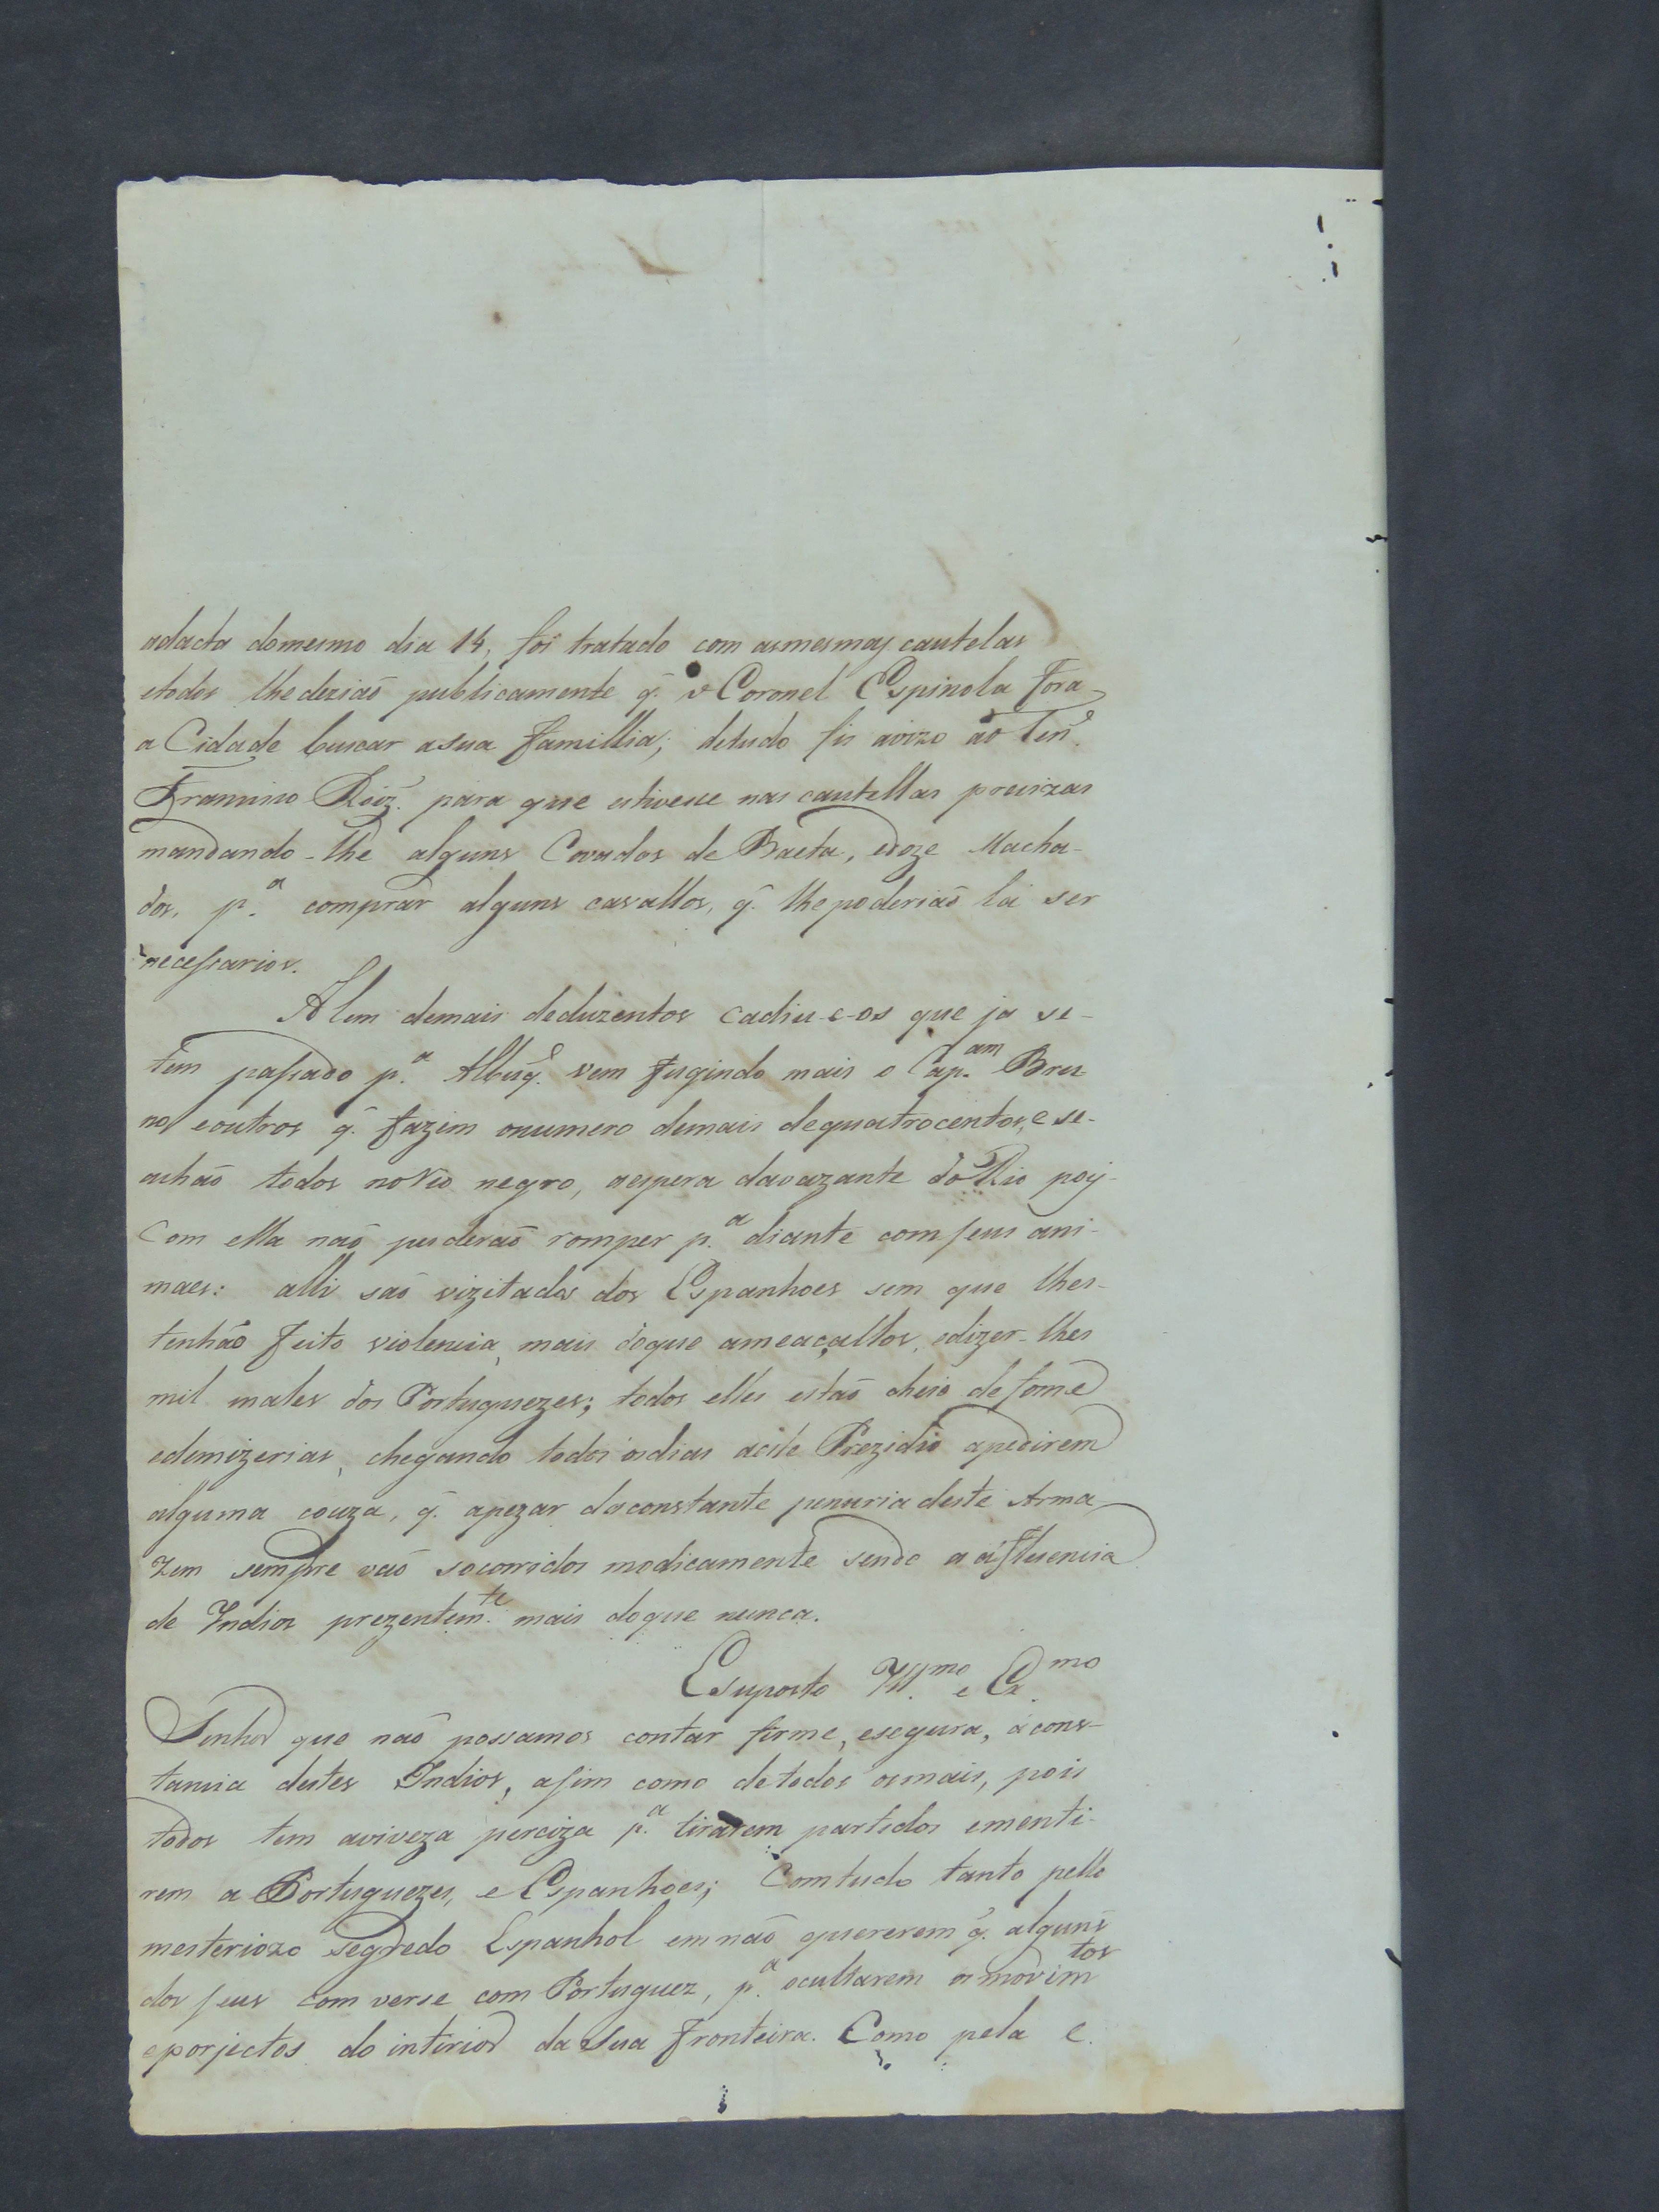 adacta domesmo dia 14, foi tratado com asmesmas cautelas
etodos lhedeziaõ publicamente q̃. o Coronel Espinola fora
a Cidade buscar asua famillia; detudo fis avizo ao Tenᵉ.
Francisco Roiz̃. para que estivesse nas cautellas precizas
mandando-lhe alguns Covados de Baeta, edoze Macha-
dos, p.ᵃ comprar alguns cavallos, q̃. lhepoderiaõ la ser
necessarios.
Alem demais deduzentos cadiu-e-os que ja se-
tem passado p.ᵃ Albuq.ᵉ vem fugindo mais o Cap.ᵃᵐ Bru-
no eoutros q̃. fazem onumero demais dequatrocentos, e se-
achaõ todos no Rio negro, aespera davazante do Rio pois
Com ella naõ puderaõ romper p.ᵃ diante com seus ani-
maes: alli saõ vizitados dos Espanhoes sem que lhes-
tenhão feito violencia, mais doque ameaçallos, edizer-lhes
mil males dos Portuguezes; todos elles estaõ cheio de fome
edemizerias, chegando todos osdias aeste Prezidio apedirem
alguma couza, q̃. apezar daconstante penuria deste Arma
zem sempre vaõ socorridos modicamente sendo a afluencia
de Indios prezentem.ᵗᵉ mais doque nunca.
Esuposto Ill.ᵐᵒ e Ex.ᵐᵒ
Senhor que naõ possamos contar firme, esegura, a cons-
tancia destes Indios, asim como detodos osmais, pois
todos tem aviveza perciza p.ᵃ tirarem partidos ementi-
rem a Portuguezes, e Espanhoes; Comtudo tanto pello
mesteriozo segredo Espanhol emnaõ quererem q̃. alguns
dos seus com verse com Portuguez, p.ᵃ ocultarem os movimᵗᵒˢ
eporjectos do interior da Sua fronteira. Como pela e